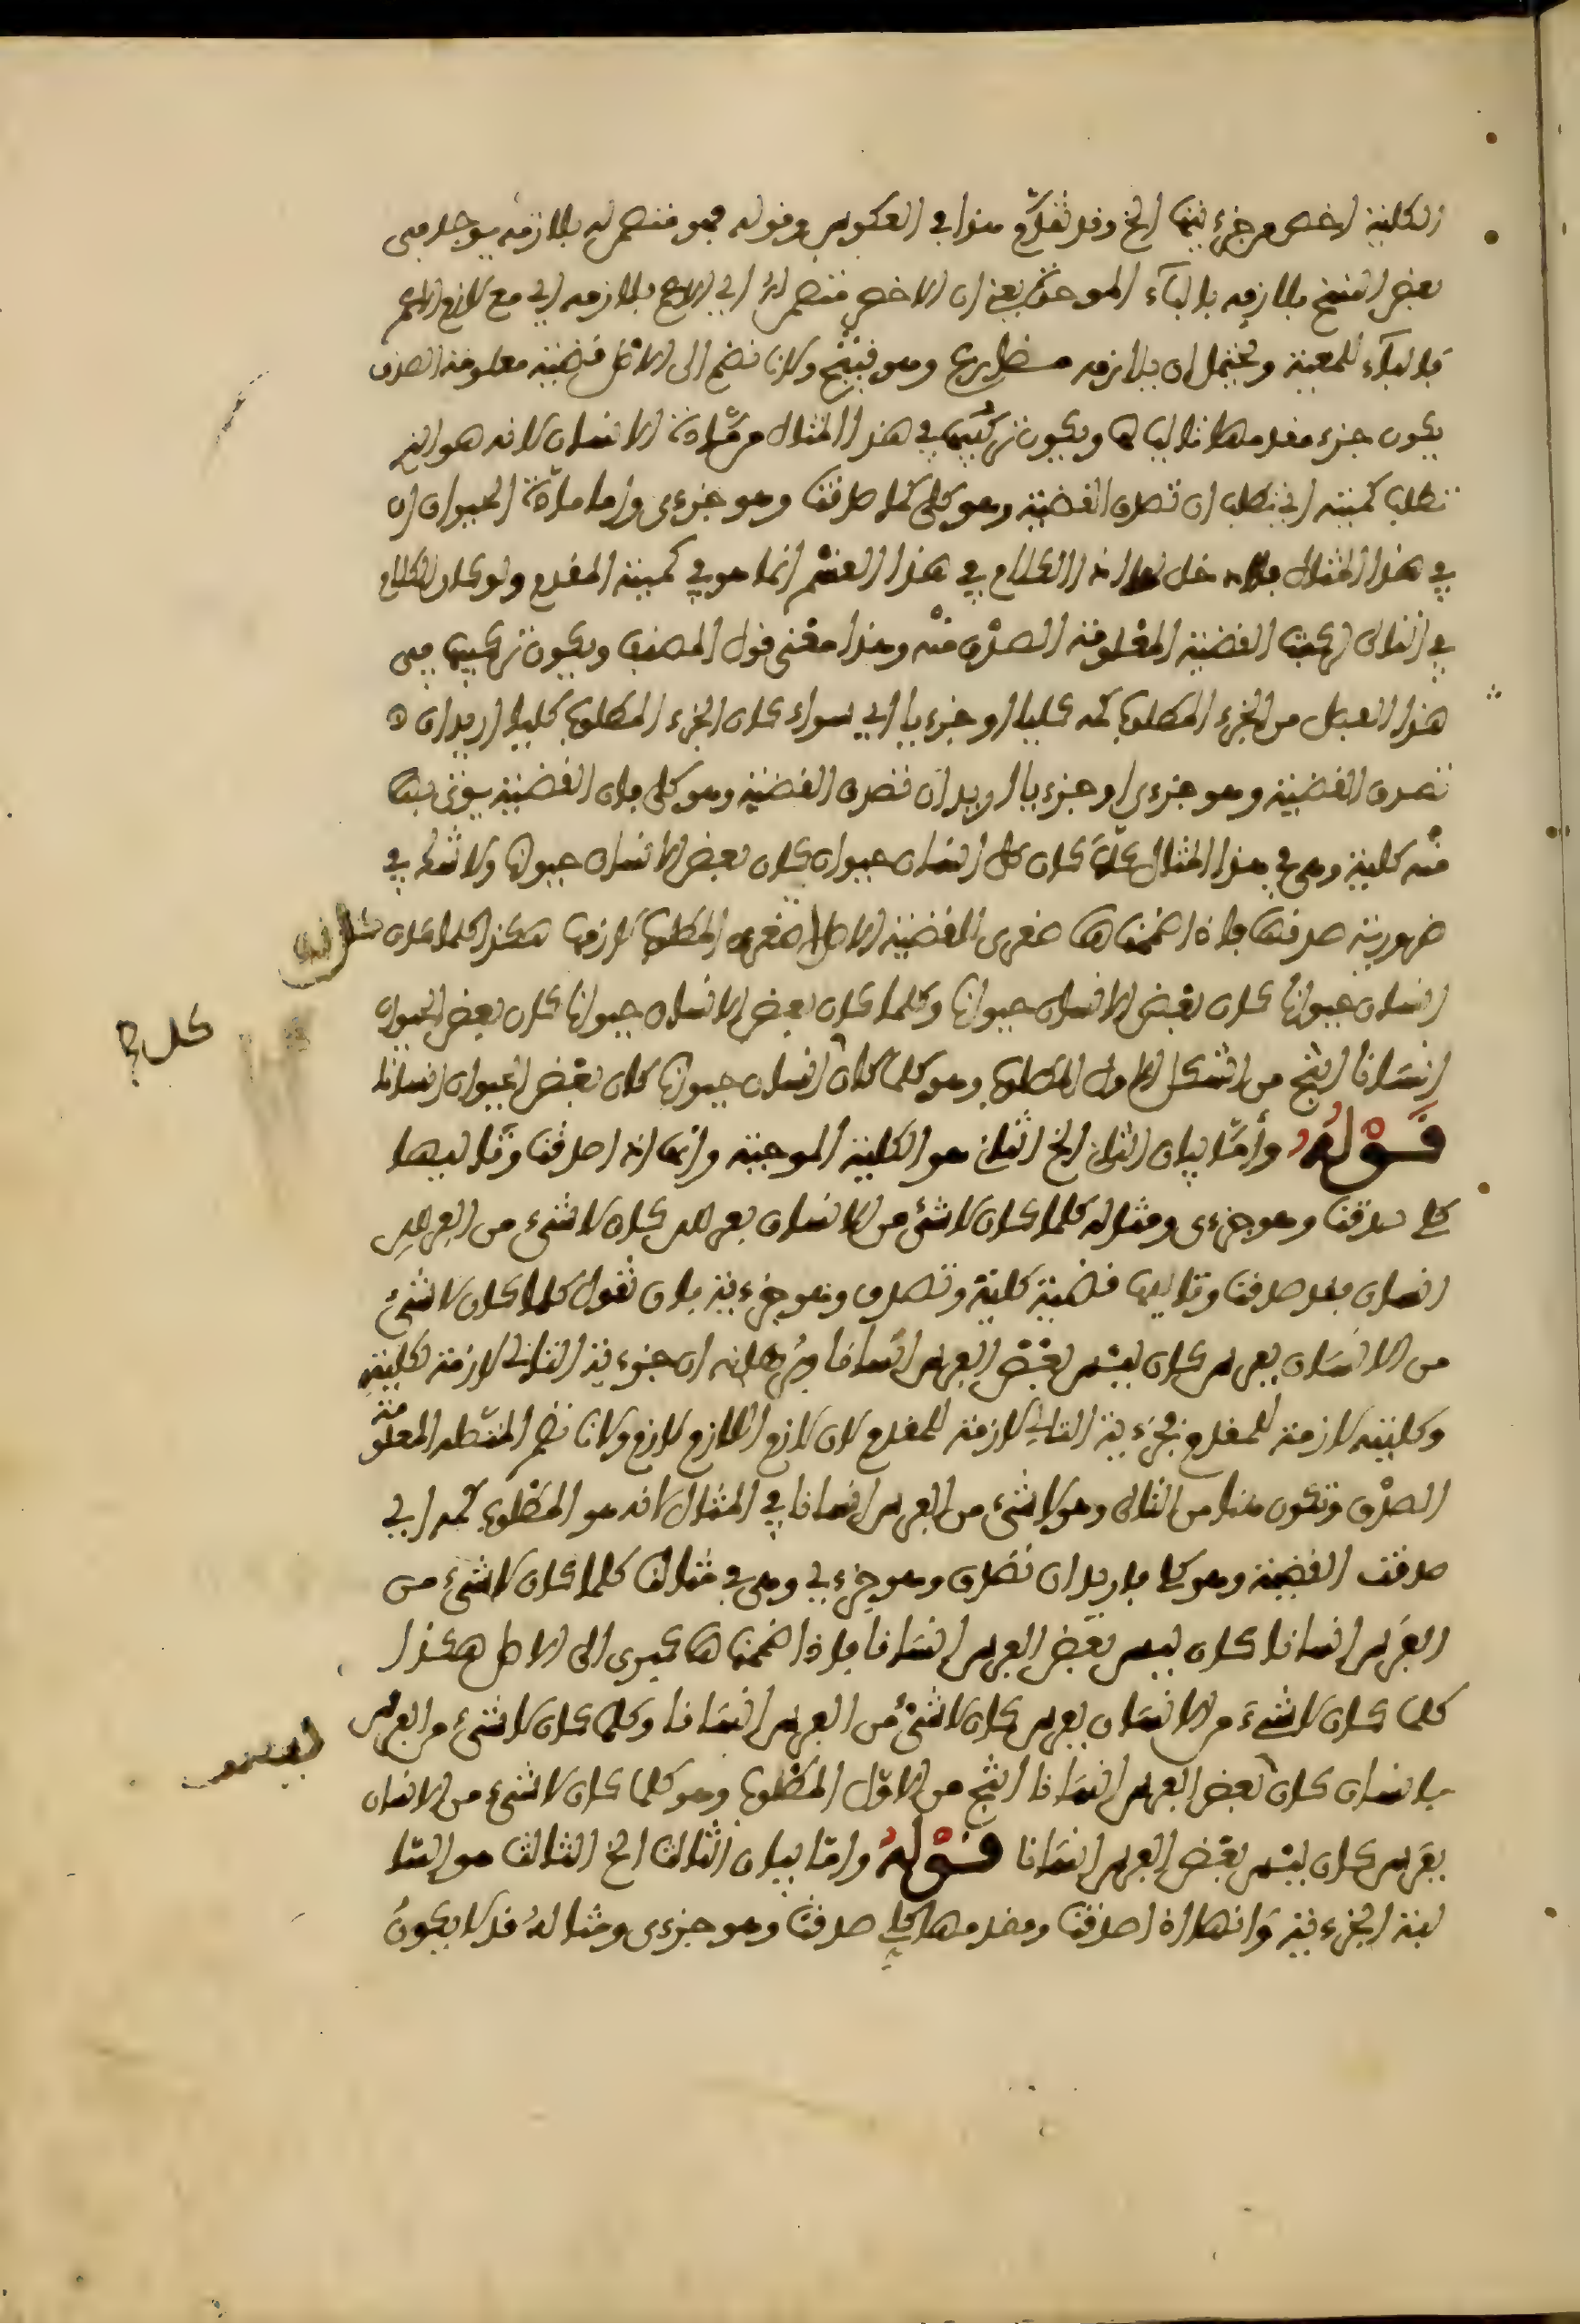 الكلية اخص من جزءيتها الخ وقد تقدم هذا في العكوس وقوله فهو منضم له بلازمه يوجد في
بعض النسخ بلازمه بالباء الموحدة يعني ان الاخص منضم له اي الاعم بلازمه اي مع لازم الاعم
فالباء للمعية ويحتمل ان يلازمه مضارع وهو فينتج ولانا نضم الى الاصل قضية معلومة الصدق
يكون جزء مقدمها تاليا لها ويكون تركيبها في هذا المثال من مادة الانسان لانه هو الذي
تطلب كميته اي تطلب ان تصدق القضية وهو كلي كما صدقت وهو جزءي واما مادة الحيوان
في هذا المثال فلا دخل لها اذ الكلام في هذا القسم انما هو في كمية المقدم ولو كان الكلام
في التالي لركبت القضية المعلومة الصدق منه وهذا معنى قول المصنف ويكون تركيبها في
هذا الفصل من الجزء المطلوب كمه كليا او جزءيا اي سواء كان الجزء المطلوب كليا اريد ان
تصدق القضية وهو جزءي او جزءيا اريد ان تصدق القضية وهو كلي فان القضية يوتى بها
منه كلية وهي في هذا المثال كلما كان كل انسان حيوان كان بعض الانسان حيوانا ولا شك في
ضرورية صدقها فاذا ضممناها صغرى للقضية الاصل صغرى المطلوب لازمها هكذا كلما كان كل
انسان حيوانا كان بعض الانسان حيوانا وكلما كان بعض الانسان حيوانا كان بعض الحيوان
كل
انسانا انتج من الشكل الاول المطلوب وهو كلما كان انسان حيوانا كان بعض الحيوان انسانا
قوله واما بيان الثاني الخ الثاني هو الكلية الموجبة وانها اذا صدقت وتاليها
كلي صدقت وهو جزءي ومثاله كلما كان لا شيء من الانسان بفرس كان لا شيء من الفرس
انسان فقد صدقت وتاليها قضية كلية وتصدق وهو جزءية بان تقول كلما كان لا شيء
من الانسان بفرس كان ليس بعض الفرس انسانا وبرهانه ان جزءية التالي لازمة لكليته
وكليته لازمة للمقدم فجزءية التالي لازمة للمقدم لان لازم اللازم لازم ولانا نضم المتصلة المعلومة
الصدق وتكون هنا من التالي وهو لا شيء من الفرس انسانا في المثال لانه هو المطلوب كمه اي
صدقت القضية وهو كلي فاريد ان تصدق وهو جزءي وهي في مثالنا كلما كان لا شيء من
الفرس انسانا كان ليس بعض الفرس انسانا فاذا ضممناها كبرى الى الاصل هكذا
كلما كان لا شيء من الانسان بفرس كان لا شيء من الفرس انسانا وكلما كان لا شيء من الفرس
ليس
بانسان كان بعض الفرس انسانا انتج من الاول المطلوب وهو كلما كان لا شيء من الانسان
بفرس كان ليس بعض الفرس انسانا قوله واما بيان الثالث الخ الثالث هو السا
لبة الجزءية وانها اذا صدقت ومقدمها كلي صدقت وهو جزءي ومثاله قد لا يكون